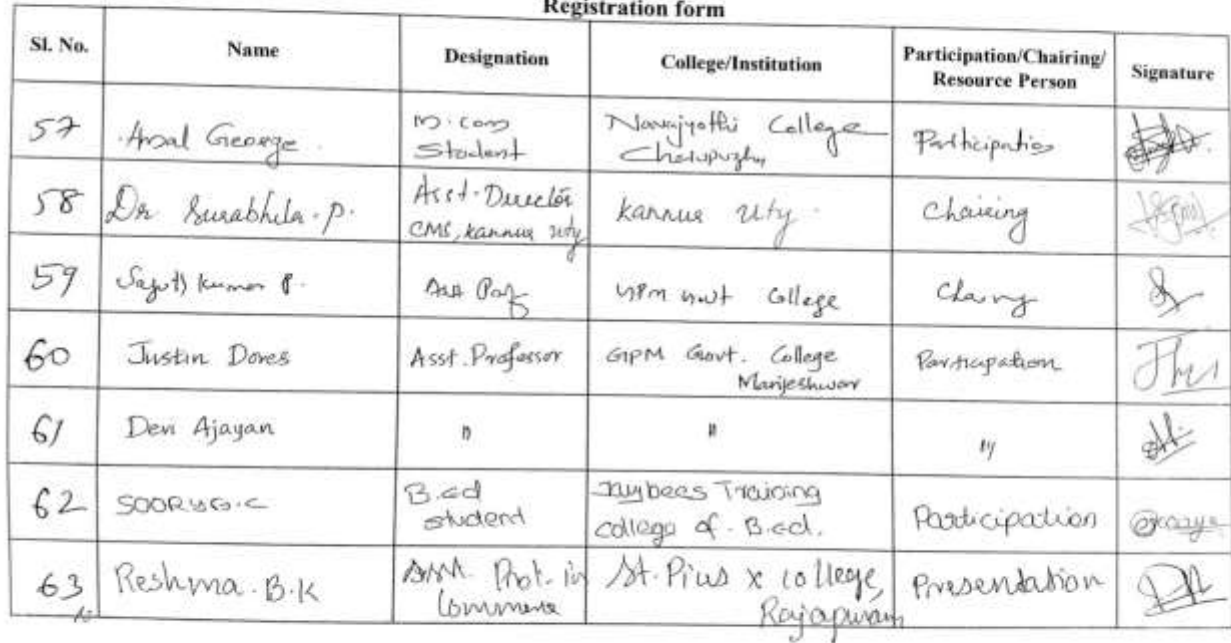 Registration form
Sl. No. Name Designation College/Institution Participation/Chairing/ Resource Person Signature
57 Amal George. M.com Student Navajyothi College Cherupuzha Participation
58 Dr Surabhila. P. Asst. Director CMS, Kannur Uty Kannur Uty. Chairing
59 Kumar P. Asst Prof GPM Govt College Chairing
60 Justin Dores Asst. Professor GPM Govt. College Manjeshwar Participation
61 Devi Ajayan " " "
62 SOORYA.C B.ed student Jaybees Training college of B.ed. Participation
63 Reshma. B.K Asst. Prof. in Commerce St. Pius X College, Rajapuram Presentation